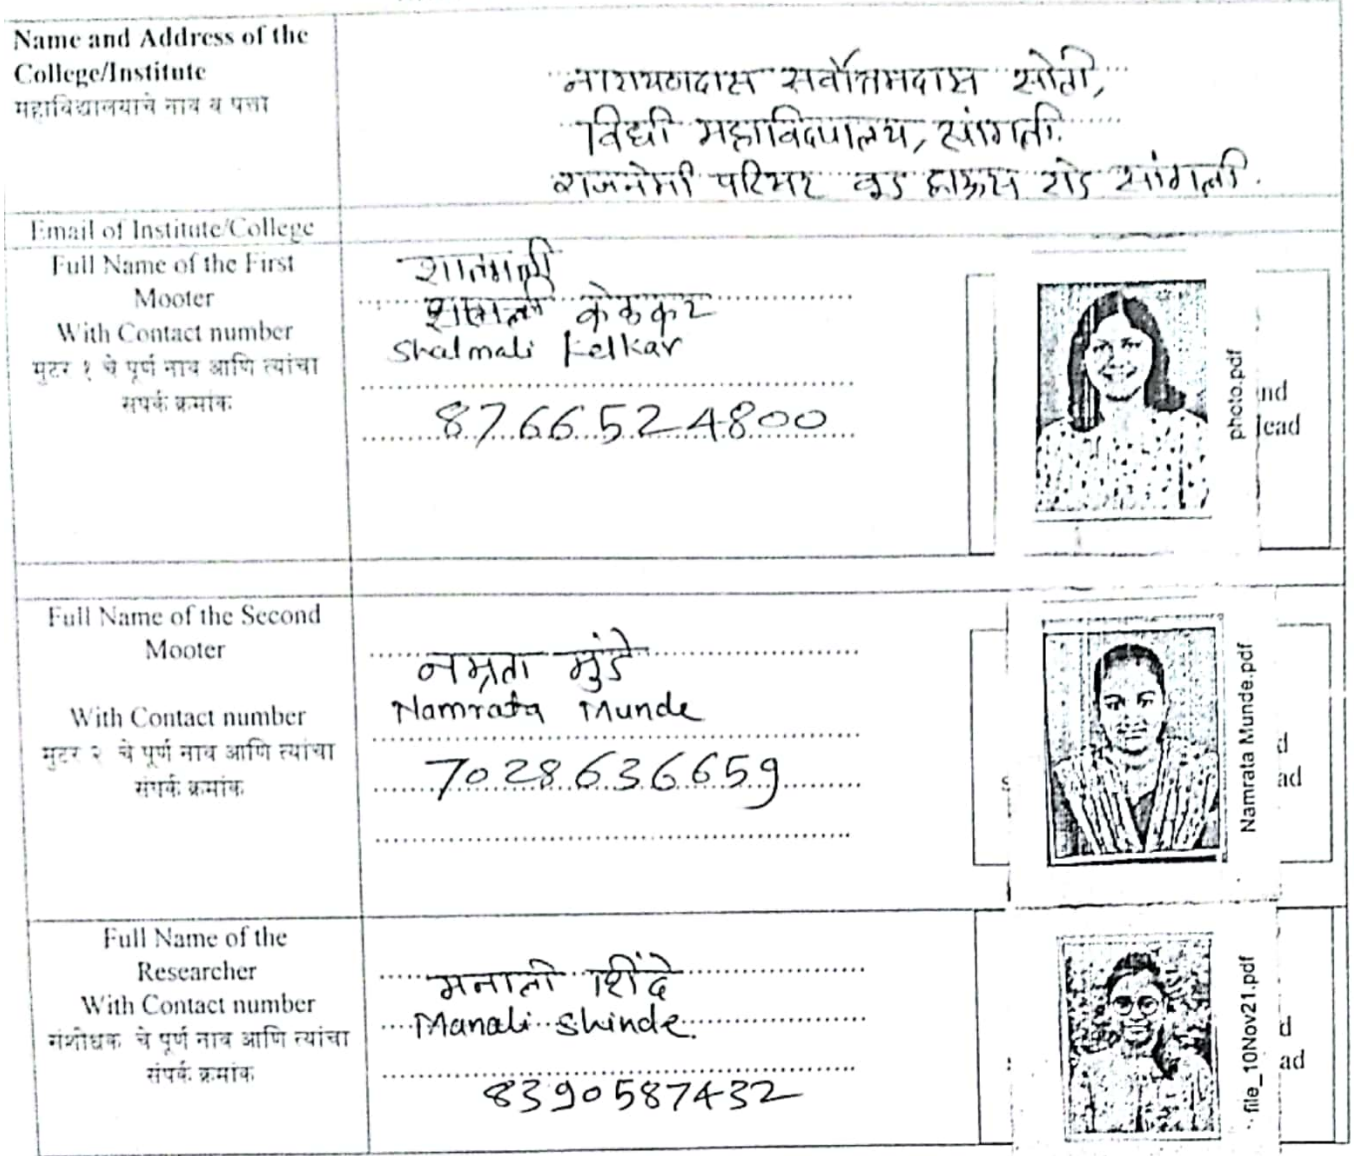 Name and Address of the
College/Institute
महाविद्यालयाचे नाव व पत्ता
नारायणदास सर्वोत्तमदास सोती,
विधी महाविद्यालय, सांगली.
राजनेमी परिसर वुड हाऊस रोड सांगली.
Email of Institute/College
Full Name of the First
Mooter
With Contact number
मुटर १ चे पूर्ण नाव आणि त्यांचा
संपर्क क्रमांक
शाल्मली
केळकर
Shalmali Kelkar
8766524800
photo.pdf
nd
lead
Full Name of the Second
Mooter
With Contact number
मुटर २ चे पूर्ण नाव आणि त्यांचा
संपर्क क्रमांक
नम्रता मुंडे
Namrata Munde
7028636659
Namrata Munde.pdf
d
ad
Full Name of the
Researcher
With Contact number
संशोधक चे पूर्ण नाव आणि त्यांचा
संपर्क क्रमांक
मनाली शिंदे
Manali Shinde.
8390587432
file_10Nov21.pdf
d
ad